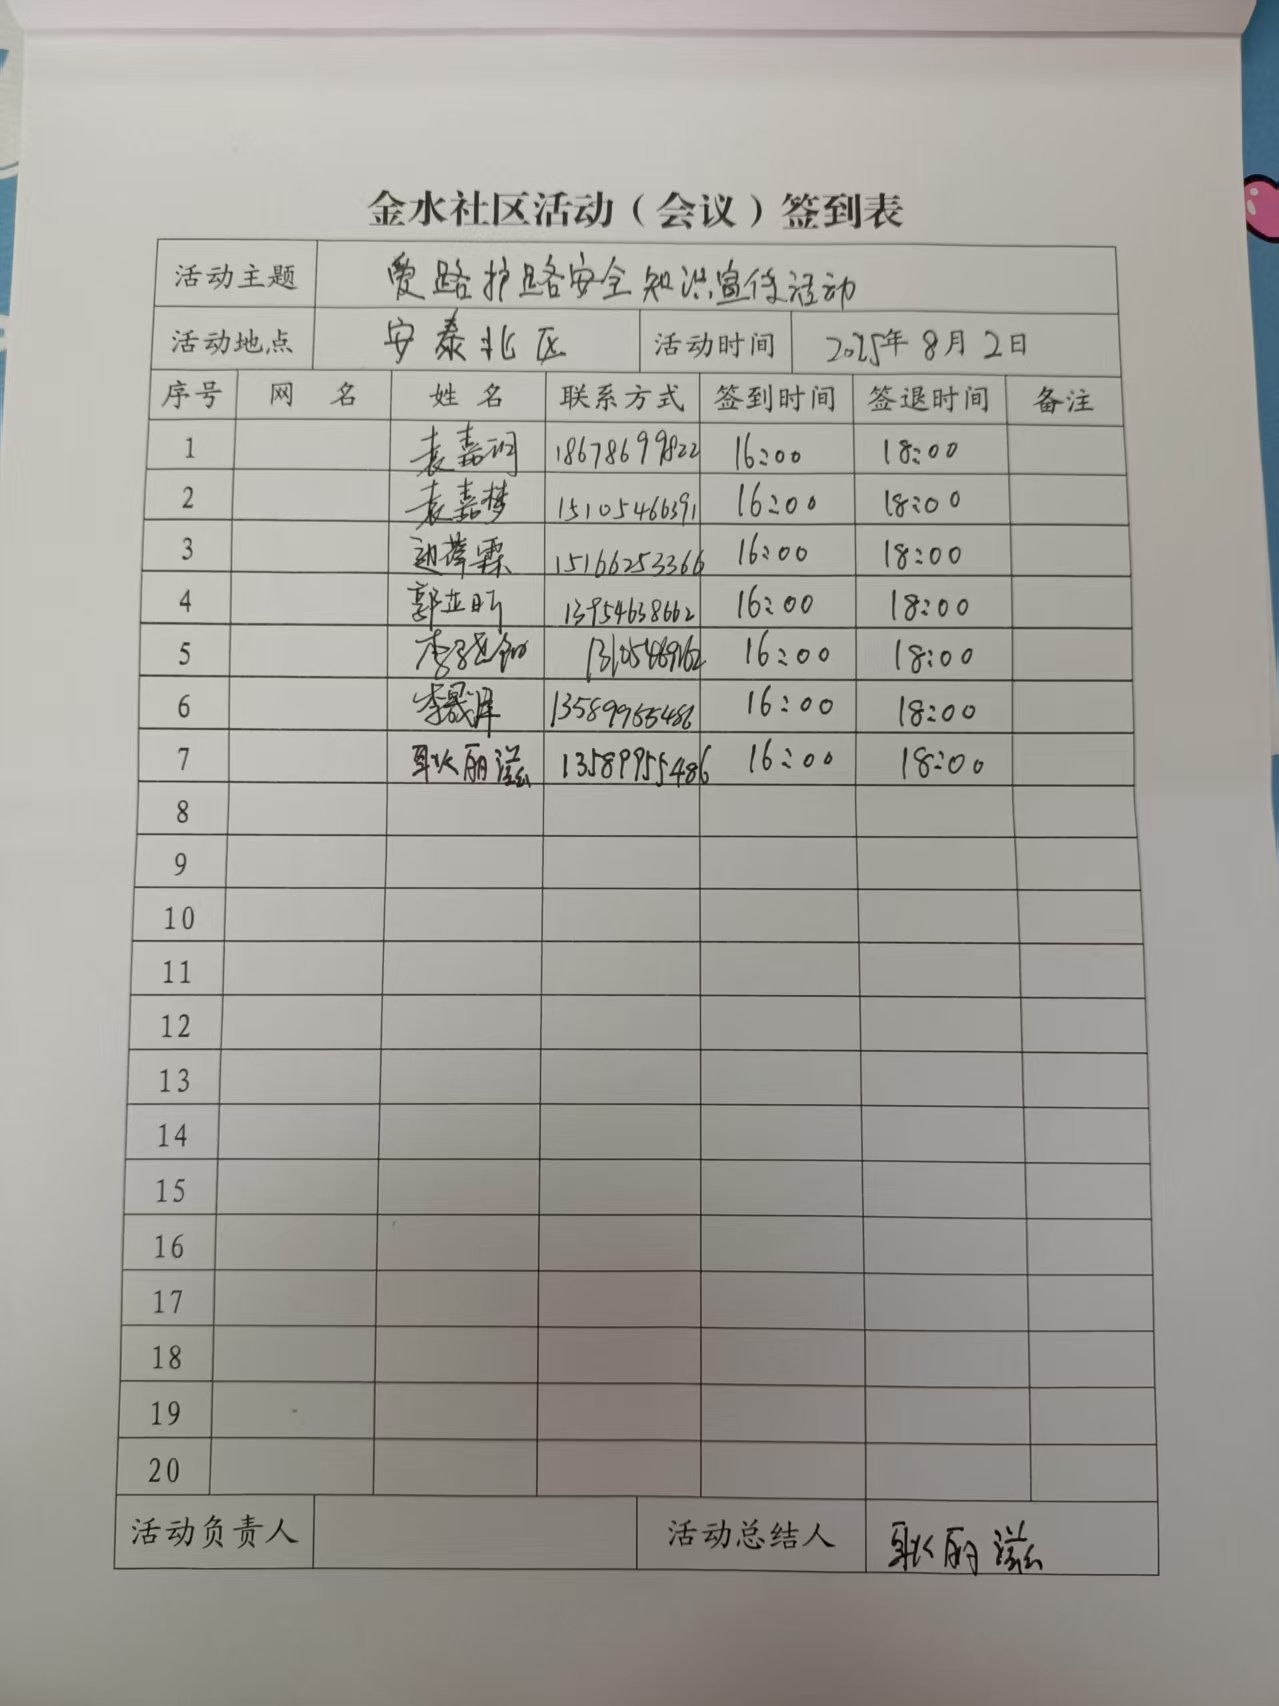 金水社区活动（会议）签到表
活动主题 爱路护路安全知识宣传活动
活动地点 安泰北区 活动时间 2025年8月2日
序号 网 名 姓 名 联系方式 签到时间 签退时间 备注
1 袁嘉玥 18678699822 16:00 18:00
2 袁嘉梦 15105466391 16:00 18:00
3 霖 15166253366 16:00 18:00
4 郭芷昕 13954638662 16:00 18:00
5 李 16:00 18:00
6 李晟泽 13589955486 16:00 18:00
7 耿丽滋 13589955486 16:00 18:00
8
9
10
11
12
13
14
15
16
17
18
19
20
活动负责人 活动总结人 耿丽滋